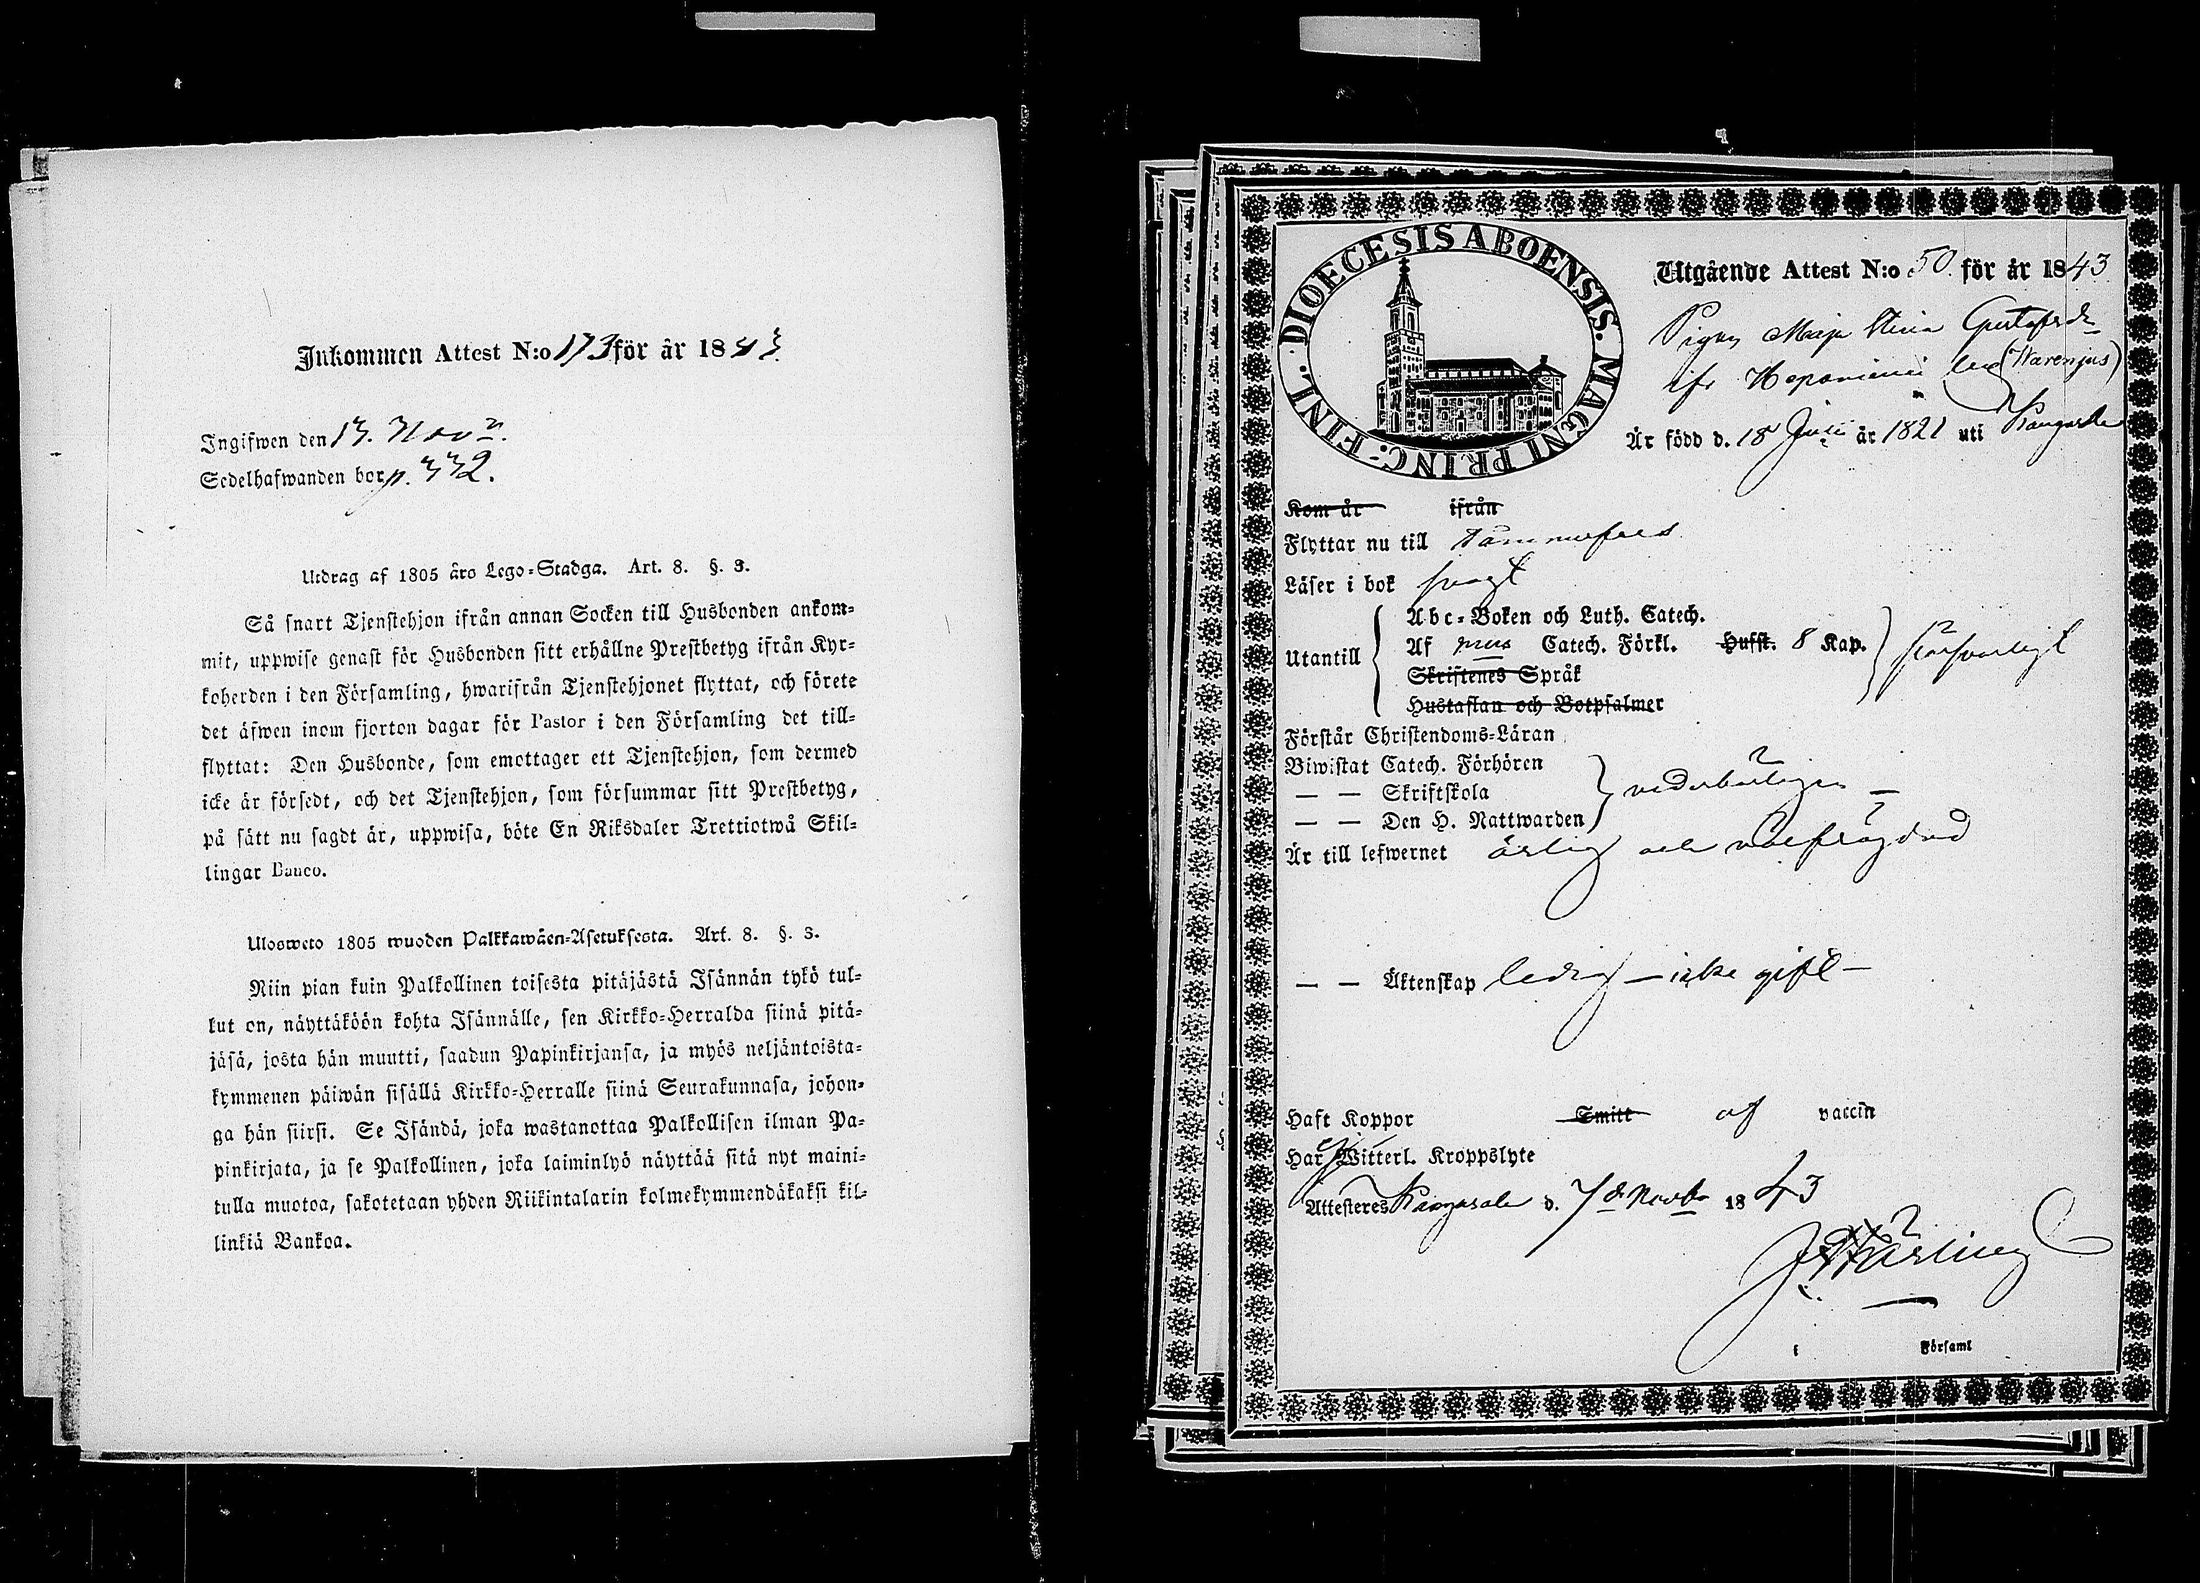 Inkommen Attest N:o 173 för år 1843.
Ingifwen den 13. Nov.
Sedelhafwanden bor p. 332.
Utdrag af 1805 års Lego-Stadga. Art. 8. §. 3.
Så snart Tjenstehjon ifrån annan Socken till Husbonden ankom-
mit, uppwise genast för Husbonden sitt erhållne Prestbetyg ifrån Kyr-
koherden i den Församling, hwarifrån Tjenstehjonet flyttat, och förete
det äfwen inom fjorton dagar för Pastor i den Församling det till-
flyttat: Den Husbonde, som emottager ett Tjenstehjon, som dermed
icke är försedt, och det Tjenstehjon, som försummar sitt Prestbetyg,
på sätt nu sagdt är, uppwisa, böte En Riksdaler Trettiotwå Skil-
lingar Banco.
Ulosweto 1805 wuoden Palkkawäen-Asetuksesta. Art. 8. §. 3.
Niin pian kuin Palkollinen toisesta pitäjästä Isännän tykö tul-
lut on, näyttäköön kohta Isännälle, sen Kirkko-Herralda siinä pitä-
jäsä, josta hän muutti, saadun Papinkirjansa, ja myös neljäntoista-
kymmenen päiwän sisällä Kirkko-Herralle siinä Seurakunnasa, johon-
ga hän siirsi. Se Isändä, joka wastanottaa Palkollisen ilman Pa-
pinkirjata, ja se Palkollinen, joka laiminlyö näyttää sitä nyt maini-
tulla muotoa, sakotetaan yhden Riikintalarin kolmekymmendäkaksi kil-
linkiä Bankoa.
DIOECESIS ABOENSIS. MAGNI PRINC: FINL.
Utgående Attest N:o 50. för år 1843
Pigan Maja Stina Gustafsdr
ifr Haponiemi (Warenjus)
Är född d. 18 Juli år 1821 uti Kangasala
Kom år ifrån
Flyttar nu till Tammerfors
Läser i bok svagt
Abc-Boken och Luth. Catech.
Utantill Af Catech. Förkl. Hufst. 8 Kap. försvarligt
Skriftenes Språk
Hustaflan och Botpsalmer
Förstår Christendoms-Läran
Biwistat Catech. Förhören
— — Skriftskola vederbörligen —
— — Den H. Nattwarden
Är till lefwernet ärlig och välfrägdad
— — Äktenskap ledig — icke gift —
Haft Koppor Smitt af vaccin
Har ej Witterl. Kroppslyte
Attesteres Kangasala d. 7de Novbr 1843
i Församl